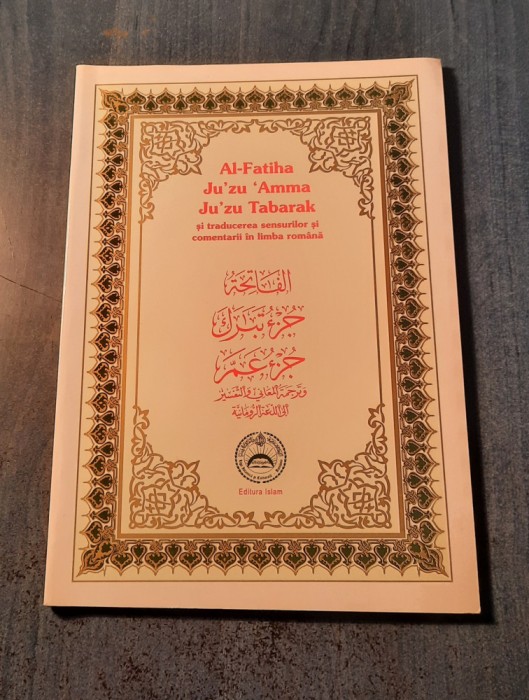 Al-Fatiha
Ju'zu 'Amma
Ju'zu Tabarak
și traducerea sensurilor și
comentarii în limba română
الفَاتِحَةُ
جُزْءُ تَبَرَكَ
جُزْءُ عَمَّ
وَتَرجَمَة المعَاني وَالتَّفسِير
الى اللغَة الرُّومَانيَّة
Editura Islam